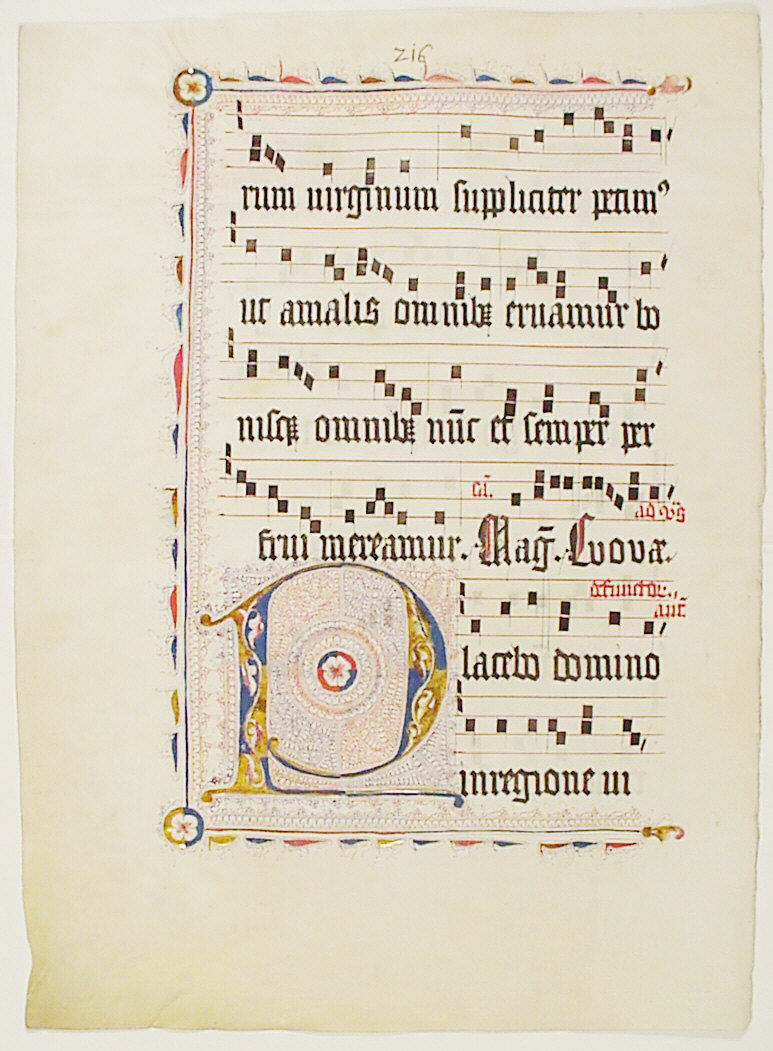 216
rum uirginum suppliciter petimꝰ
ut amalis omnibꝫ eruamur bo
nisqꝫ omnibꝫ nūc et semper per
frui mereamur. Mag̃. Euouae.
defunctor.
añt.
Placebo domino
in regione ui